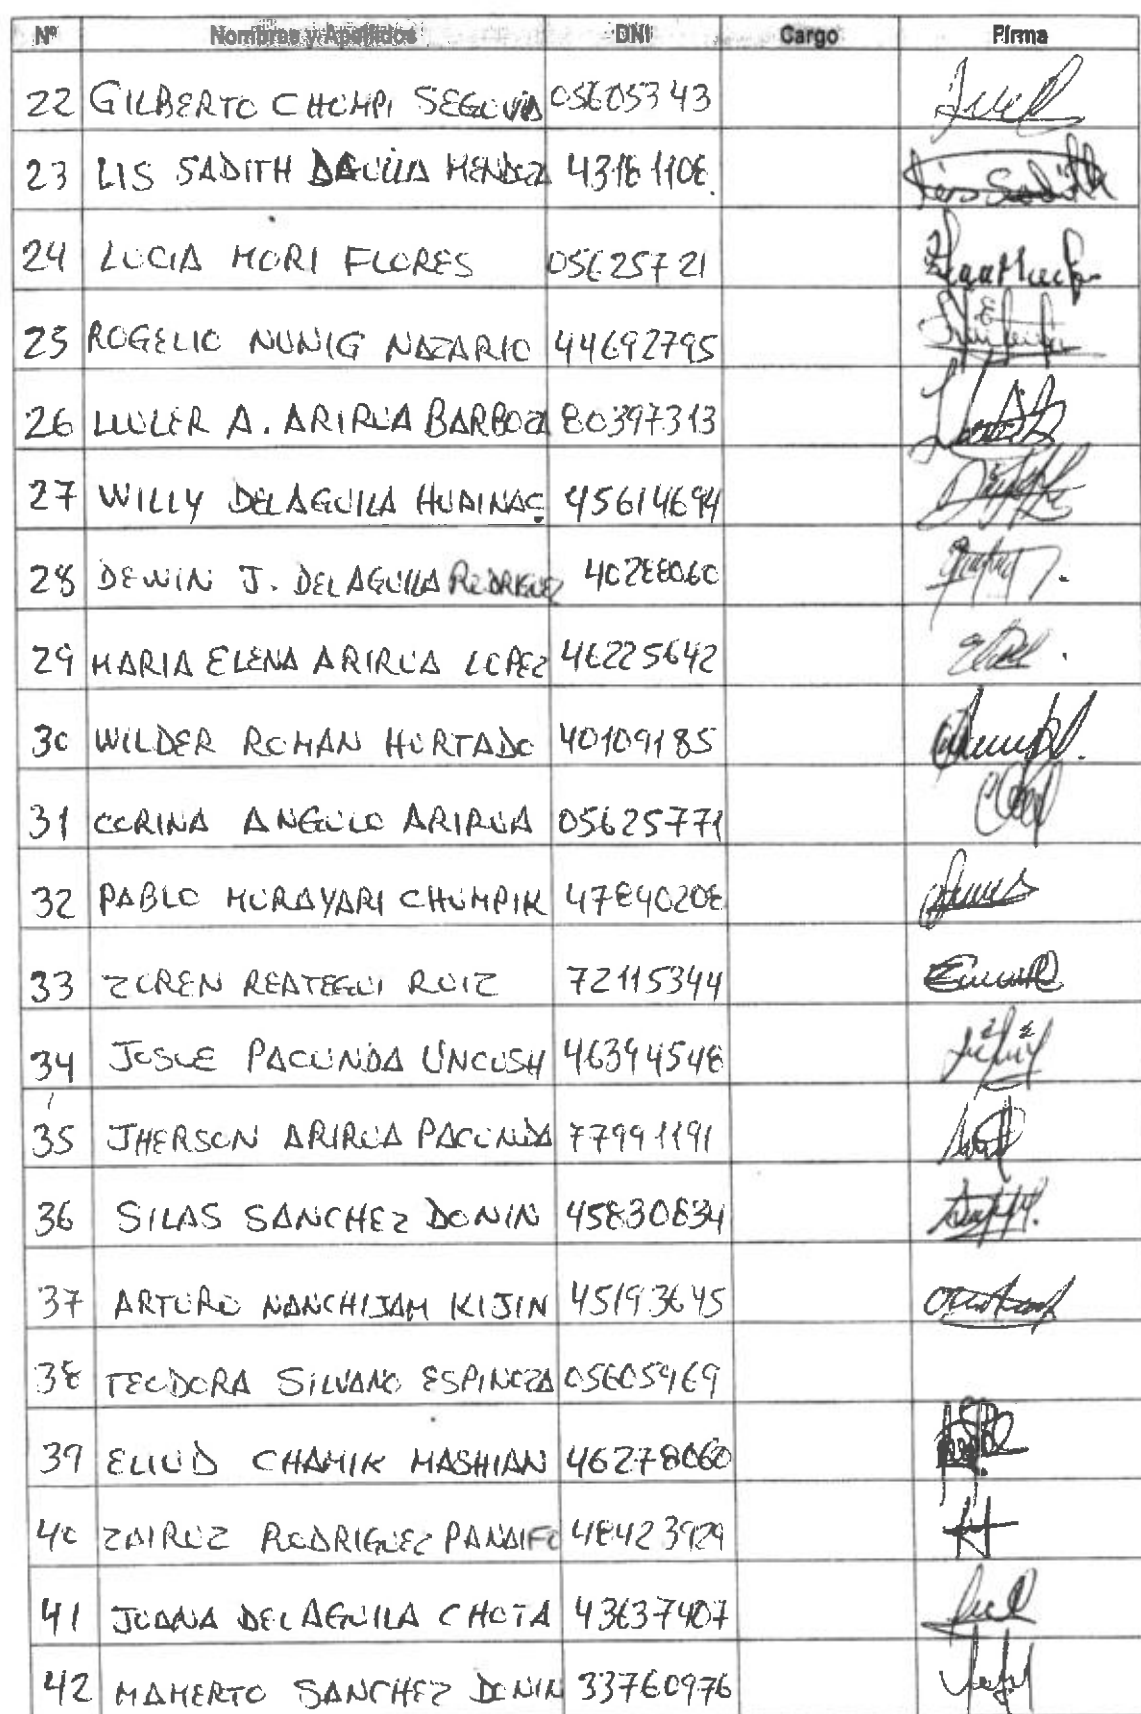 Nº Nombres y Apellidos DNI Cargo Firma
22 GILBERTO CHUMPI SEGUVIA 05605343
23 LIS SADITH DAVILA MENDOZA 43181108
24 LUCIA MORI FLORES 05625721
25 ROGELIO NUNIG NAZARIO 44692795
26 LLULER A. ARIRUA BARBOZA 80397313
27 WILLY DEL AGUILA HUAINAC 45614694
28 DEWIN J. DEL AGUILA RODRIGUEZ 40288060
29 MARIA ELENA ARIRUA LOPEZ 46225642
30 WILDER ROMAN HURTADO 40109185
31 CORINA ANGULO ARIRUA 05625771
32 PABLO MURAYARI CHUMPIK 47840208
33 ZUREN REATEGUI RUIZ 72115344
34 JOSUE PACUNDA UNCUSH 46394548
35 JHERSON ARIRUA PACUNDA 77991191
36 SILAS SANCHEZ DONIN 45830834
37 ARTURO NANCHIJAM KIJIN 45193645
38 TEODORA SILVANO ESPINOZA 05605969
39 ELIUD CHAMIK MASHIAN 46278060
40 ZAIRUZ RODRIGUEZ PANAIFO 48423929
41 JUANA DEL AGUILA CHOTA 43637407
42 MAMERTO SANCHEZ DONIN 33760976